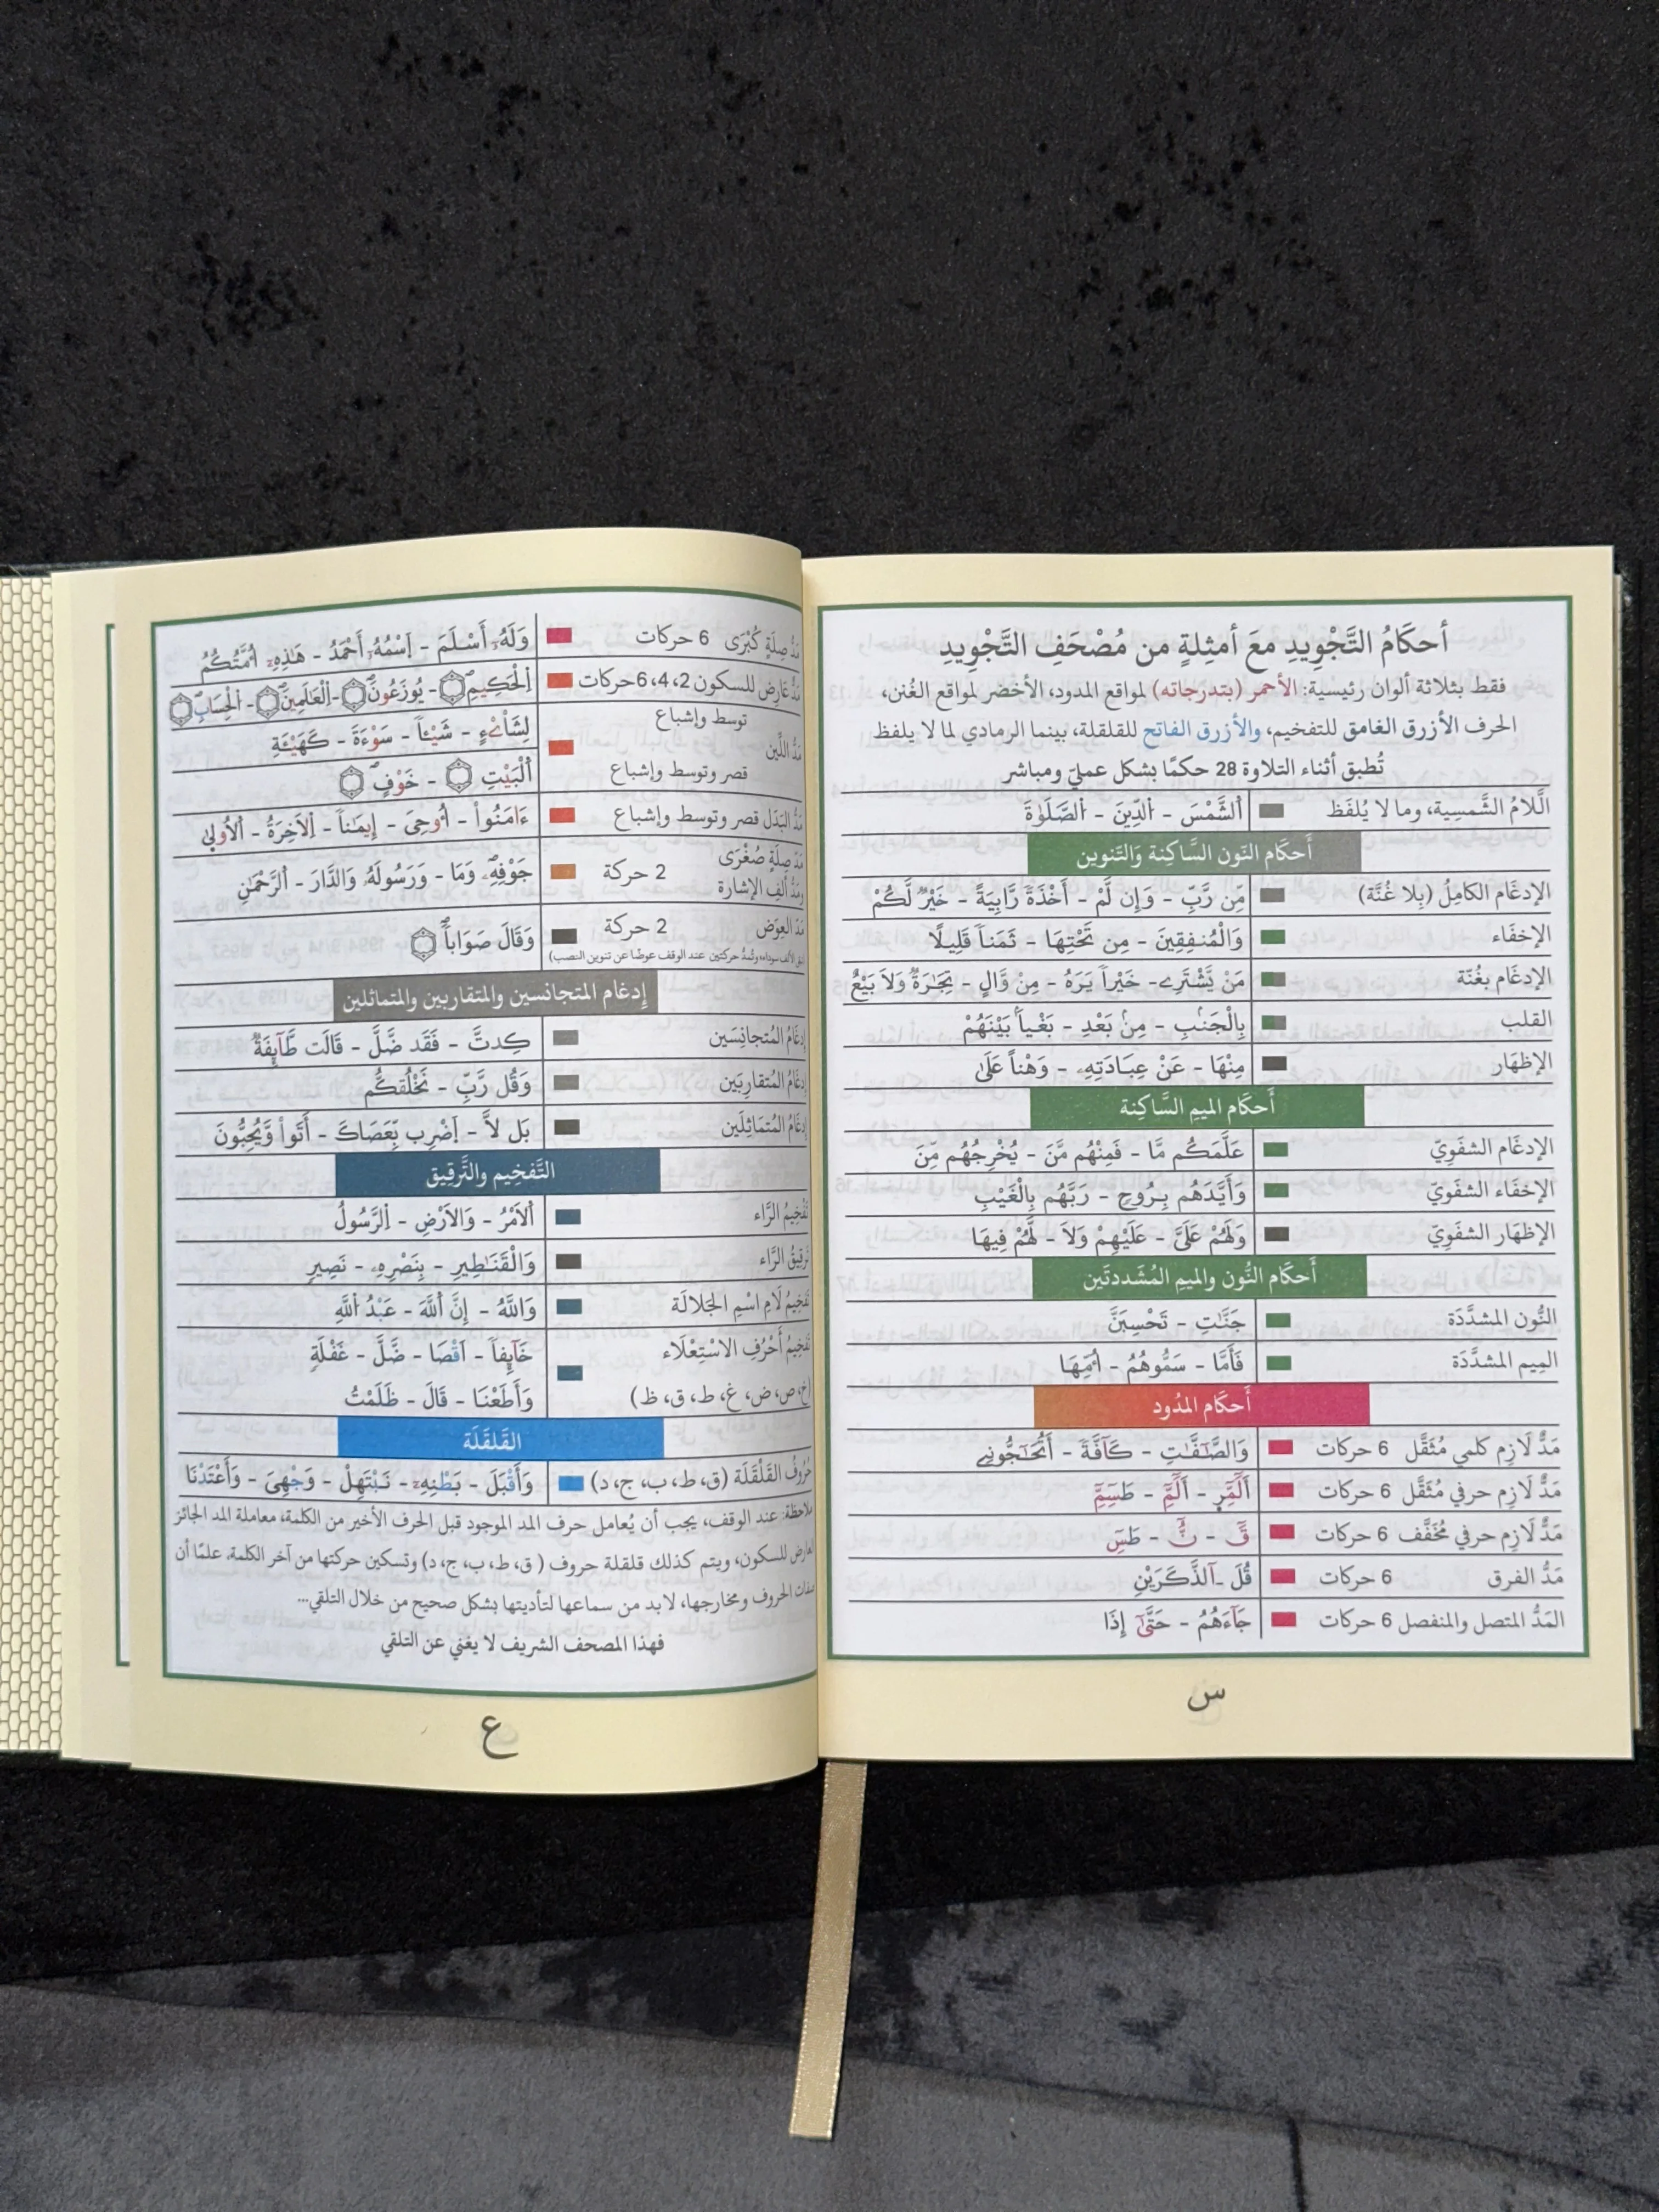 أحكَامُ التَّجْوِيدِ معَ أمثِلةٍ من مُصْحَفِ التَّجْوِيدِ
فقط بثلاثة ألوان رئيسية: الأحمر (بتدرجاته) لمواقع المدود، الأخضر لمواقع الغُنن،
الحرف الأزرق الغامق للتفخيم، والأزرق الفاتح للقلقلة، بينما الرمادي لما لا يلفظ
تُطبق أثناء التلاوة 28 حكمًا بشكل عملي ومباشر
اللَّامُ الشَّمسِية، وما لا يُلفَظ اَ۬لشَّمْسَ - اَ۬لدِّينَ - اَ۬لصَّلَوٰةَ
أحكَام النّون السَّاكِنَة وَالتَّنوين
الإدغَام الكامِلُ (بِلا غُنَّة) مِّن رَّبِّ - وَإِن لَّمْ - أَخْذَةً رَّابِيَةً - خَيْرٌ لَّكُمْ
الإخفَاء وَالْمُنفِقِينَ - مِن تَحْتِهَا - ثَمَناً قَلِيلًا
الإدغَام بغُنَّة مَنْ يَّشْتَرِے - خَيْراً يَرَهُ - مِنْ وَّالٍ - تِجَـٰرَةٌ وَلاَ بَيْعٌ
القلب بِالْجَنۢبِ - مِنۢ بَعْدِ - بَغْياَۢ بَيْنَهُمْ
الإظهَار مِنْهَا - عَنْ عِبَادَتِهِۦ - وَهْناً عَلَىٰ
أحكَام الميمِ السَّاكِنة
الإدغَام الشفَوِيّ عَلَّمَكُم مَّا - فَمِنْهُم مَّنَ - يُخْرِجُهُم مِّنَ
الإخفَاء الشفَوِيّ وَأَيَّدَهُم بِرُوحٍ - رَبَّهُم بِالْغَيْبِ
الإظهَار الشفَوِيّ وَلَهُمْ عَلَىَّ - عَلَيْهِمْ وَلاَ - لَهُمْ فِيهَا
أحكَام النُّون والميمِ المُشَددتَين
النُّون المشدَّدَة جَنَّـٰتٍ - تَحْسِبَنَّ
المِيم المشدَّدَة فَأَمَّا - سَمُّوهُمُ - أُمِّهَا
أحكَام المدُود
مَدٌّ لَازِم كلمي مُثَقَّل 6 حركات وَالصَّـٰٓفَّـٰتِ - كَآفَّةً - أَتُحَـٰٓجُّونِّے
مَدٌّ لَازِم حرفي مُثَقَّل 6 حركات أَلَٓمِّٓر - أَلَٓمِّٓ - طَسِٓمِّٓ
مَدٌّ لَازِم حرفي مُخَفَّف 6 حركات قَٓ - نَٓ - طَسِٓ
مَدُّ الفرق 6 حركات قُلَ ـآلذَّكَرَيْنِ
المَدُّ المتصل والمنفصل 6 حركات جَآءَهُمُ - حَتَّىٰٓ إِذَا
س
مَدُّ صِلَةٍ كُبْرَى 6 حركات وَلَهُۥٓ أَسْلَمَ - اَ۪سْمُهُۥٓ أَحْمَدُ - هَـٰذِهِۦٓ أُمَّتُكُمُ
مَدُّ عَارِض للسكون 2، 4، 6 حركات اِ۬لْحَكِيمِ - يُوزَعُونَ - اَ۬لْعَـٰلَمِينَ - اَ۬لْحِسَابِ
توسط وإشباع لِشَاْےْءٍ - شَيْـاً - سَوْءَةَ - كَهَيْـَٔةِ
مَدُّ اللِّين
قصر وتوسط وإشباع اَ۬لْبَيْتِ - خَوْفٍ
مَدُّ البَدَل قصر وتوسط وإشباع ءَامَنُواْ - أُوحِيَ - إِيمَـٰناً - اَ۬لاَخِرَةُ - اَ۬لُاولىٰ
مَدّ صِلَةٍ صُغْرَى
ومَدُّ ألِف الإشارة 2 حركة جَوْفِهِۦ وَمَا - وَرَسُولَهُۥ وَالدَّارَ - اَ۬لرَّحْمَـٰنِ
مَدّ العِوَض 2 حركة وَقَالَ صَوَاباً
(تبقى الألف سوداء، وتُمَدُّ حركتين عند الوقف عوضًا عن تنوين النصب)
إدغام المتجانسين والمتقاربين والمتماثلين
إدغَامُ المُتجانِسَين كِدتَّ - فَقَد ضَّلَّ - قَالَت طَّآئِفَةٌ
إدغَامُ المُتقارِبَين وَقُل رَّبِّ - نَخْلُقكُّم
إدغَامُ المُتَمَاثِلَين بَل لاَّ - اَ۪ضْرِب بِّعَصَاكَ - أَتَواْ وَّيُحِبُّونَ
التَّفخِيم والتَّرقِيق
تَفْخِيمُ الرَّاء اَ۬لَامْرُ - وَالَارْضِ - اِ۬لرَّسُولُ
تَرقِيقُ الرَّاء وَالْقَنَـٰطِيرِ - بِنَصْرِهِۦ - نَصِيرٍ
تَفخِيمُ لَامِ اسْمِ الجَلالَة وَاللَّهُ - إِنَّ اَ۬للَّهَ - عَبْدُ اُ۬للَّهِ
تَفخِيمُ أَحْرُفِ الاسْتِعْلَاء خَآئِفاً - أَقْصَا - ضَلَّ - غَفْلَةٍ
(خ، ص، ض، غ، ط، ق، ظ) وَأَطَعْنَا - قَالَ - ظَلَمْتُ
القَلقَلَة
حُرُوفُ القَلْقَلَة (ق، ط، ب، ج، د) وَأَقْبَلَ - بَطْنِهِۦ - نَبْتَهِلْ - وَجْهِيَ - وَأَعْتَدْنَا
ملاحظة: عند الوقف، يجب أن يُعامل حرف المد الموجود قبل الحرف الأخير من الكلمة، معاملة المد الجائز
العارض للسكون، ويتم كذلك قلقلة حروف ( ق، ط، ب، ج، د) وتسكين حركتها من آخر الكلمة. علمًا أن
صفات الحروف ومخارجها، لابد من سماعها لتأديتها بشكل صحيح من خلال التلقي...
فهذا المصحف الشريف لا يغني عن التلقي
ع